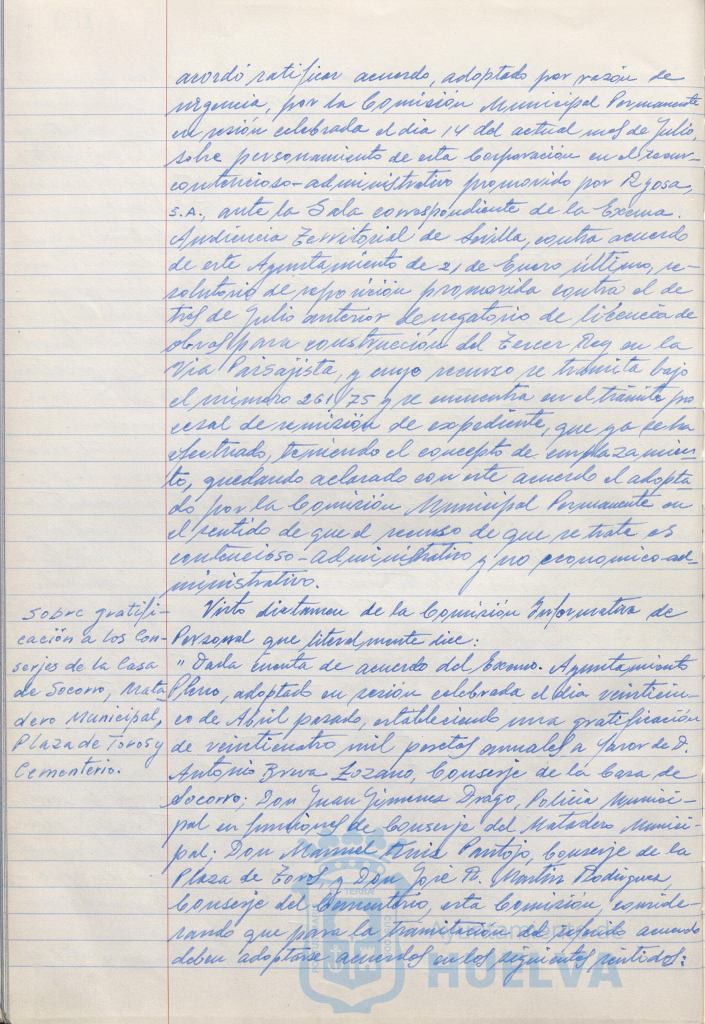 acordó ratificar acuerdo, adoptado por razón de
urgencia, por la Comisión Municipal Permanente
en sesión celebrada el dia 14 del actual mes de Julio,
sobre personamiento de esta Corporación en el recur-
contencioso-administrativo promovido por Rysa,
S.A., ante la Sala correspondiente de la Excma.
Audiencia Territorial de Sevilla, contra acuerdo
de este Ayuntamiento de 21 de Enero último, re-
solutorio de reposición promovida contra el de
tres de Julio anterior denegatorio de licencia de
obras para construcción del Tercer Rey en la
Via Paisajista, y cuyo recurso se tramita bajo
el número 261/75 y se encuentra en el trámite pro
cesal de remisión de expediente, que ya se ha
efectuado, teniendo el concepto de emplazamien-
to, quedando aclarado con este acuerdo el adopta-
do por la Comisión Municipal Permanente en
el sentido de que el recurso de que se trata es
contencioso-administrativo y no economico-ad-
ministrativo.
Sobre gratifi-
cación a los Con-
serjes de la Casa
de Socorro, Mata
dero Municipal,
Plaza de Toros y
Cementerio.
Visto dictamen de la Comisión Informativa de
Personal que literalmente dice:
"Dada cuenta de acuerdo del Excmo. Ayuntamiento
Pleno, adoptado en sesión celebrada el dia veinticin-
co de Abril pasado, estableciendo una gratificación
de veinticuatro mil pesetas anuales a favor de D.
Antonio Lozano, Conserje de la Casa de
Socorro; Don Juan Jimenez Drago, Policia Munici-
pal en funciones de Conserje del Matadero Munici-
pal; Don Manuel Ruiz Pantoja, Conserje de la
Plaza de Toros, y Don José A. Martin Rodriguez,
Conserje del Cementerio, esta Comisión, conside-
rando que para la tramitación del referido acuerdo
deben adoptarse acuerdos en los siguientes sentidos:
Ayuntamiento de
HUELVA